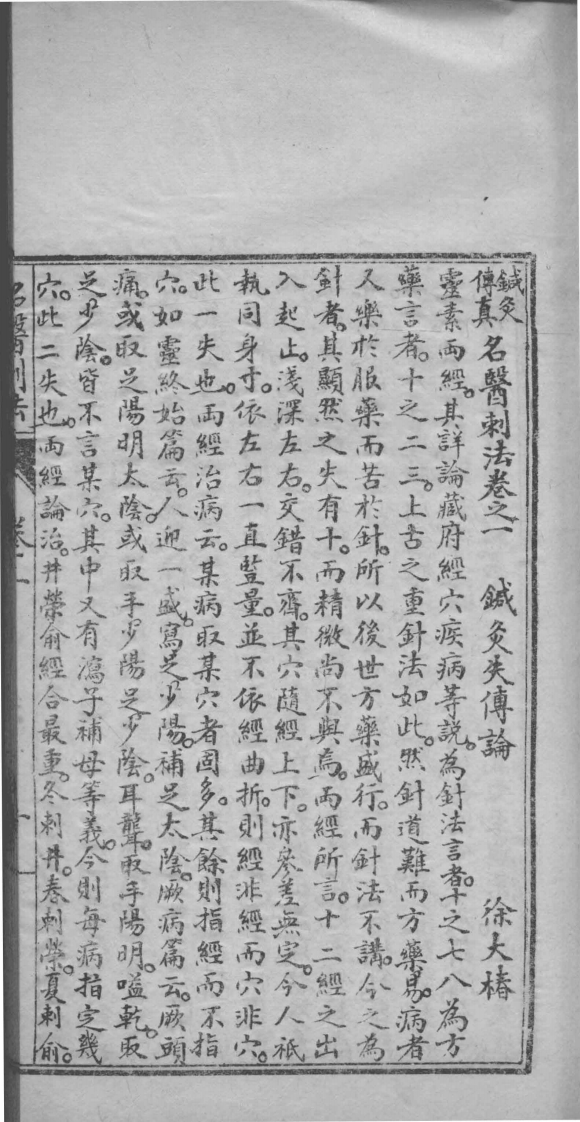 鍼灸傳真 名醫刺法卷之一 鍼灸失傳論 徐大椿
靈素兩經。其詳論藏府經穴疾病等説。為針法言者。十之七八為方
藥言者。十之二三。上古之重針法如此。然針道難而方藥易。病者
又樂於服藥而苦於針。所以後世方藥盛行。而針法不講。今之為
針者。其顯然之失有十。而精微尚不與焉。兩經所言。十二經之出
入起止。淺深左右。交錯不齊。其穴隨經上下。亦參差無定。今人祇
執同身寸。依左右一直竪量。並不依經曲折。則經非經而穴非穴。
此一失也。兩經治病云。某病取某穴者固多。其餘則指經而不指
穴。如靈終始篇云。人迎一盛。寫足少陽。補足太陰。厥病篇云。厥頭
痛。或取足陽明太陰。或取手少陽足少陰。耳聾。取手陽明。嗌乾。取
足少陰。皆不言某穴。其中又有瀉子補母等義。今則每病指定幾
穴。此二失也。兩經論治。井榮俞經合最重。冬刺井。春刺榮。夏刺俞。
名醫刺法 卷一